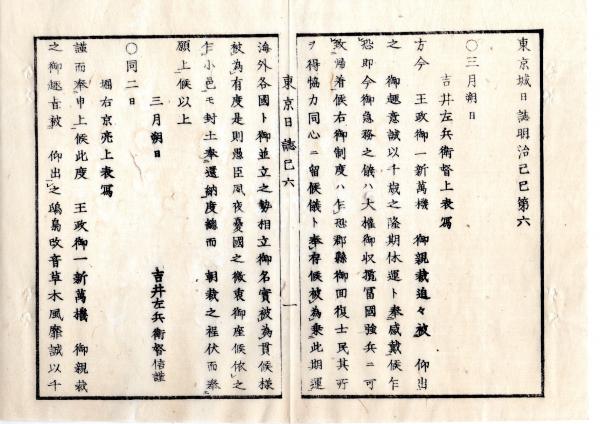 東京城日誌明治己巳第六
〇三月朔日
吉井左兵衞督上表寫
方今　王政御一新萬機　御親裁追々被　仰出
之　御趣意誠以千歳之隆期休運ト奉感戴候乍
恐即今御急務之儀ハ大權御収攬冨國強兵ニ可
致帰着候右御制度ハ乍恐郡縣御回復士民其所
ヲ得協力同心ニ留候儀ト奉存候被為乗此期運
東京日誌己六
一
海外各國ト御並立之勢相立御名實被為貫候様
被為有度是則愚臣夙夜憂國之微衷御座候依之
乍小邑モ封土奉還納度謹而　朝裁之程伏而奉
願上候以上
三月朔日
吉井左兵衞督信謹
〇同二日
堀右京亮上表寫
謹而奉申上候此度　王政御一新萬機　御親裁
之御趣旨被　仰出之鴟鴞改音草木風靡誠以千